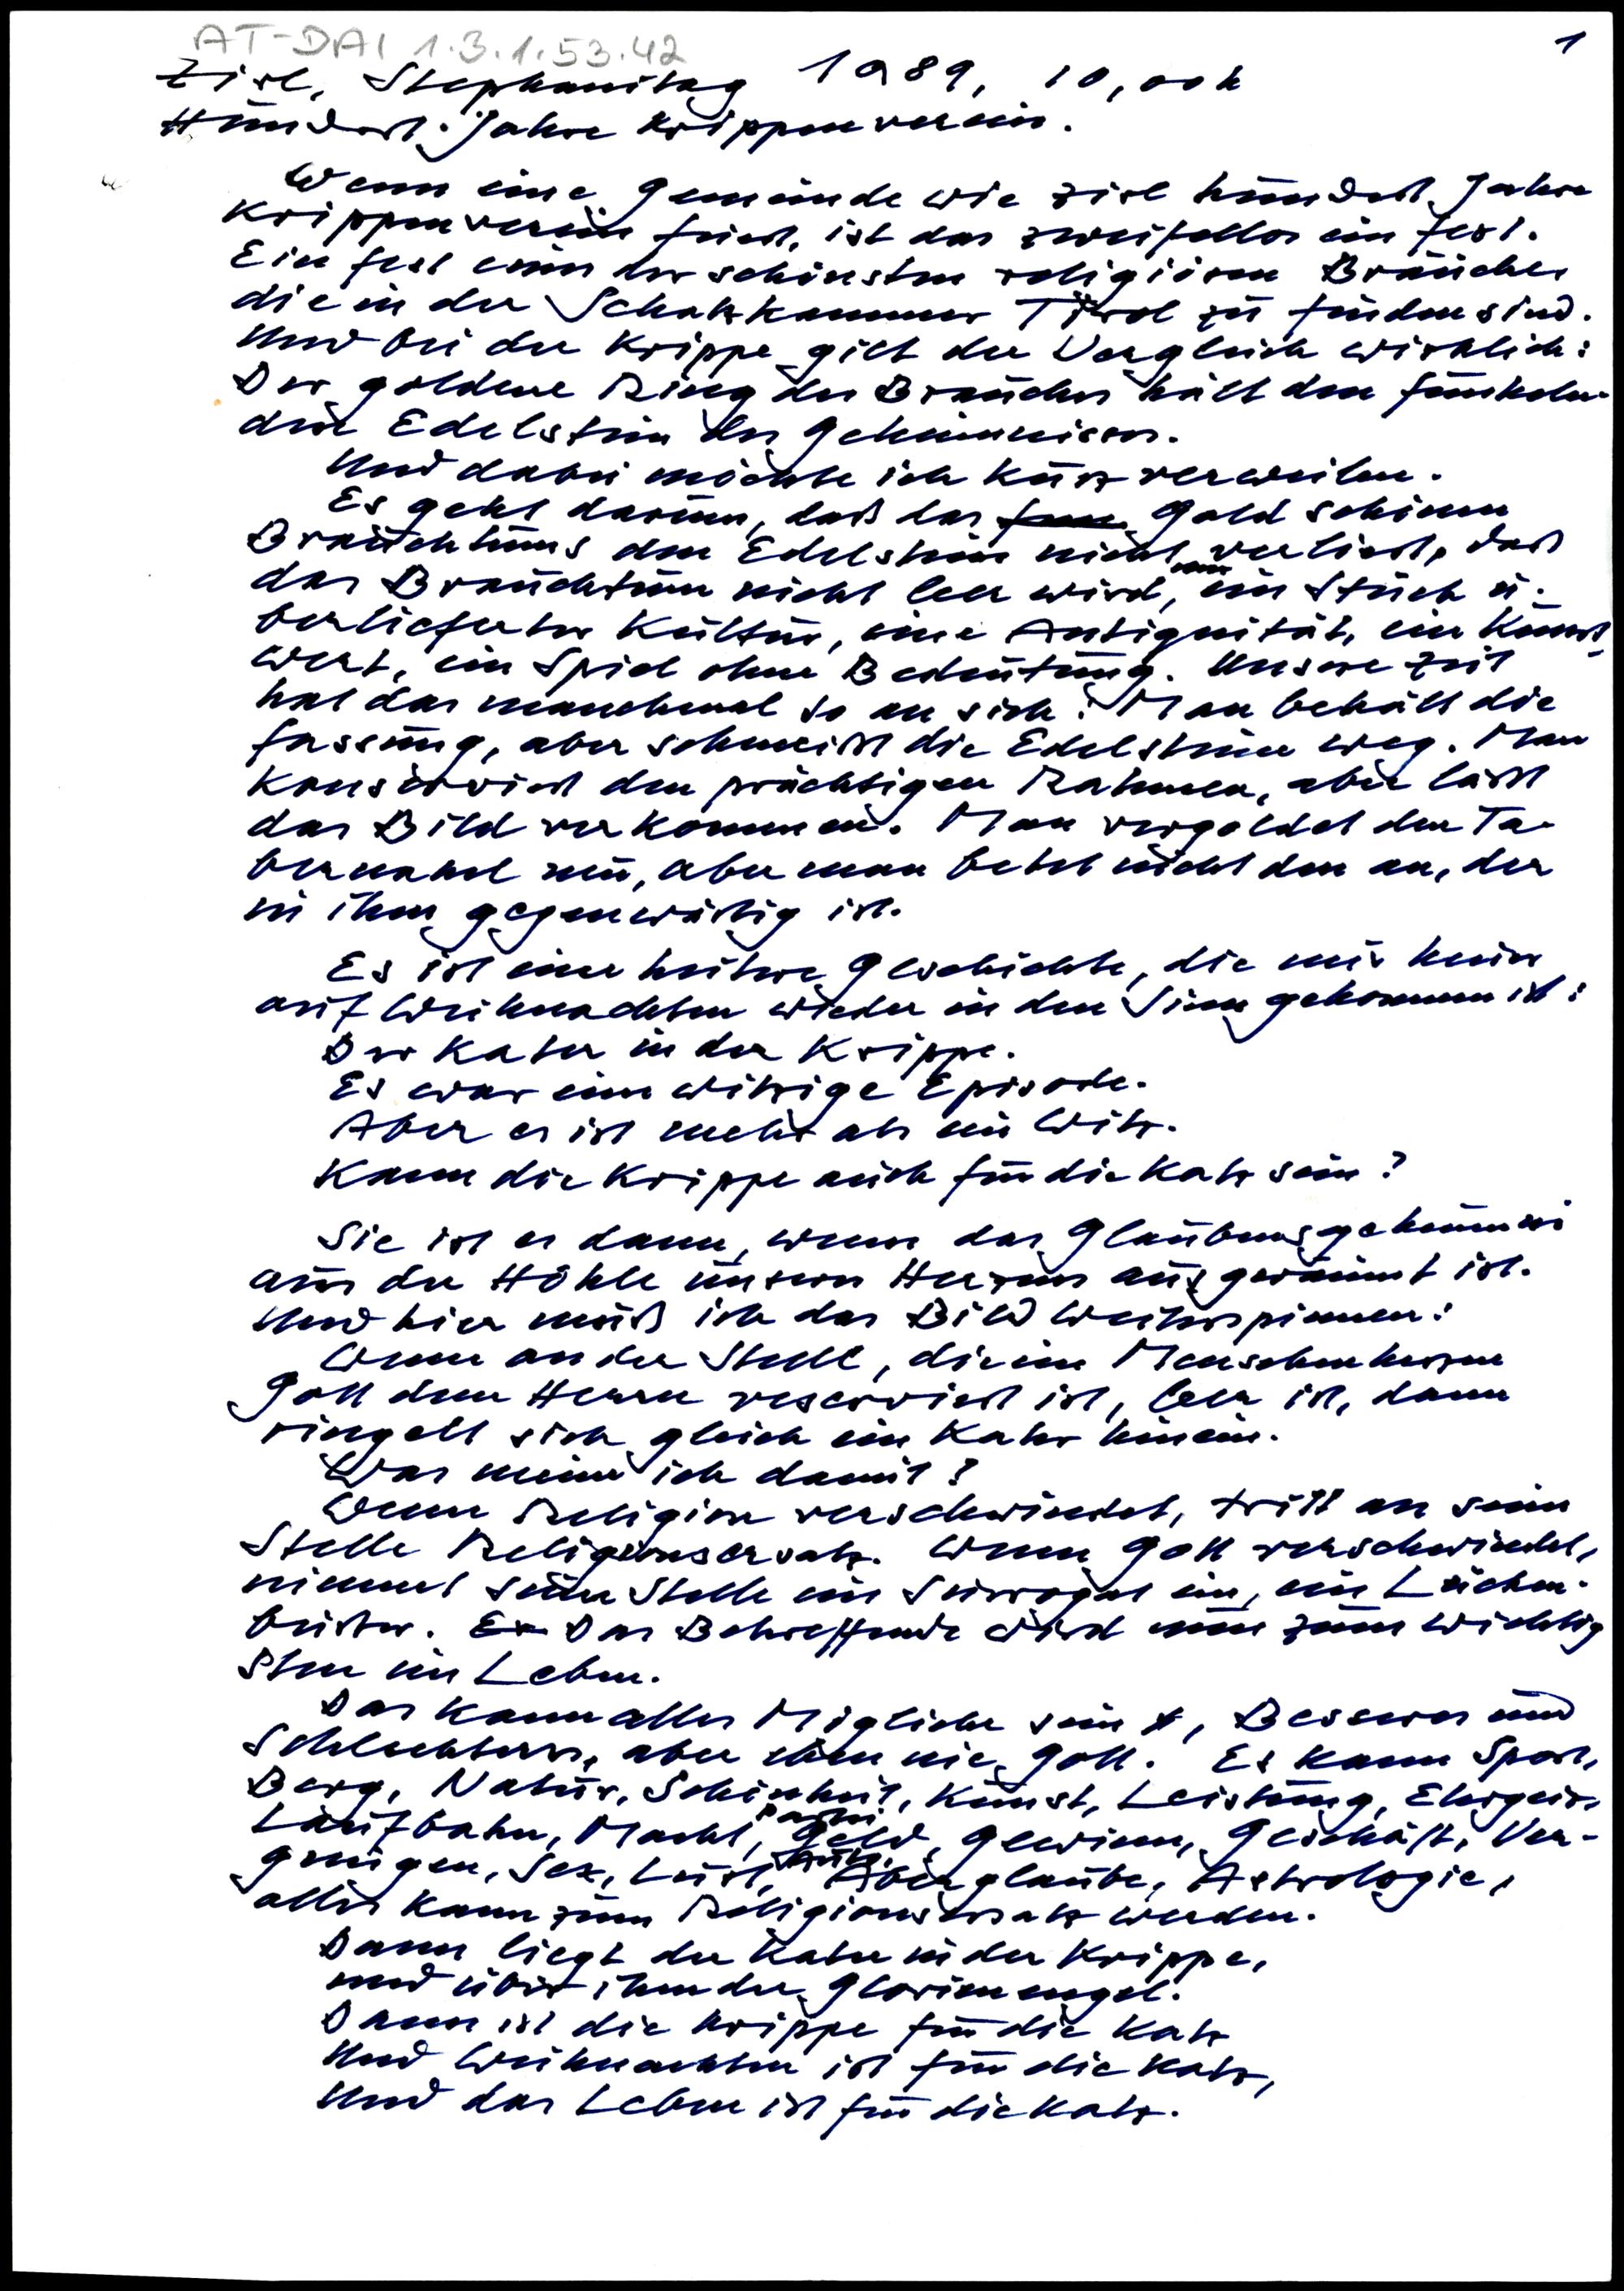 AT-DAI 1.3.1.53.42
1
Zirl, Stephanitag 1989, 10,00h
Hundert Jahre Krippenverein.
Wenn eine Gemeinde wie Zirl hundert Jahre
Krippenverein feiert, ist das zweifellos ein Fest.
Ein Fest eines der schönsten religiösen Bräuche,
die in der Schatzkammer Tirol zu finden sind.
Und bei der Krippe gilt der Vergleich wirklich:
Der goldene Ring des Brauches hält den funkeln-
den Edelstein des Geheimnisses.
Und dabei möchte ich kurz verweilen.
Es geht darum, daß das Gold seines
Brauchtums den Edelstein nicht verliert, daß
das Brauchtum nicht leer wird, nur ein Stück ü-
berlieferter Kultur, eine Antiquität, ein Kunst-
wert, ein Spiel ohne Bedeutung. Unsere Zeit
hat das manchmal so an sich: Man behält die
Fassung, aber schmeißt die Edelsteine weg. Man
konserviert den prächtigen Rahmen, aber läßt
das Bild verkommen. Man vergoldet den Ta-
bernakel neu, aber man betet nicht den an, der
in ihm gegenwärtig ist.
Es ist eine heitere Geschichte, die mir heuer
auf Weihnachten wieder in den Sinn gekommen ist:
Der Kater in der Krippe.
Es war eine witzige Episode.
Aber es ist mehr als ein Witz.
Kann die Krippe auch für die Katz sein?
Sie ist es dann, wenn das Glaubensgeheimnis
aus der Höhle unseres Herzens ausgeräumt ist.
Und hier muß ich das Bild weiterspinnen:
Wenn an der Stelle, die im Menschenherzen
Gott dem Herrn reserviert ist, leer ist, dann
ringelt sich gleich ein Kater hinein.
Was meine ich damit?
Wenn Religion verschwindet, tritt an seine
Stelle Religionsersatz. Wenn Gott verschwindet,
nimmt seine Stelle ein Surrogat ein, ein Lücken-
büßer. Er Das Betreffende wird nun zum Wichtig
sten im Leben.
Das kann alles Mögliche sein, Besseres und
Schlechteres, aber eben nie Gott. Es kann Sport,
Berg, Natur, Schönheit, Kunst, Leistung, Ehrgeiz,
Laufbahn, Macht, Partei, Geld, Gewinn, Geschäft, Ver-
gnügen, Sex, Lust, Auto, Aberglaube, Astrologie,
alles kann zum Religionsersatz werden.
Dann liegt der Kater in der Krippe,
und über ihm der Glorienengel.
Dann ist die Krippe für die Katz
Und Weihnachten ist für die Katz,
Und das Leben ist für die Katz.